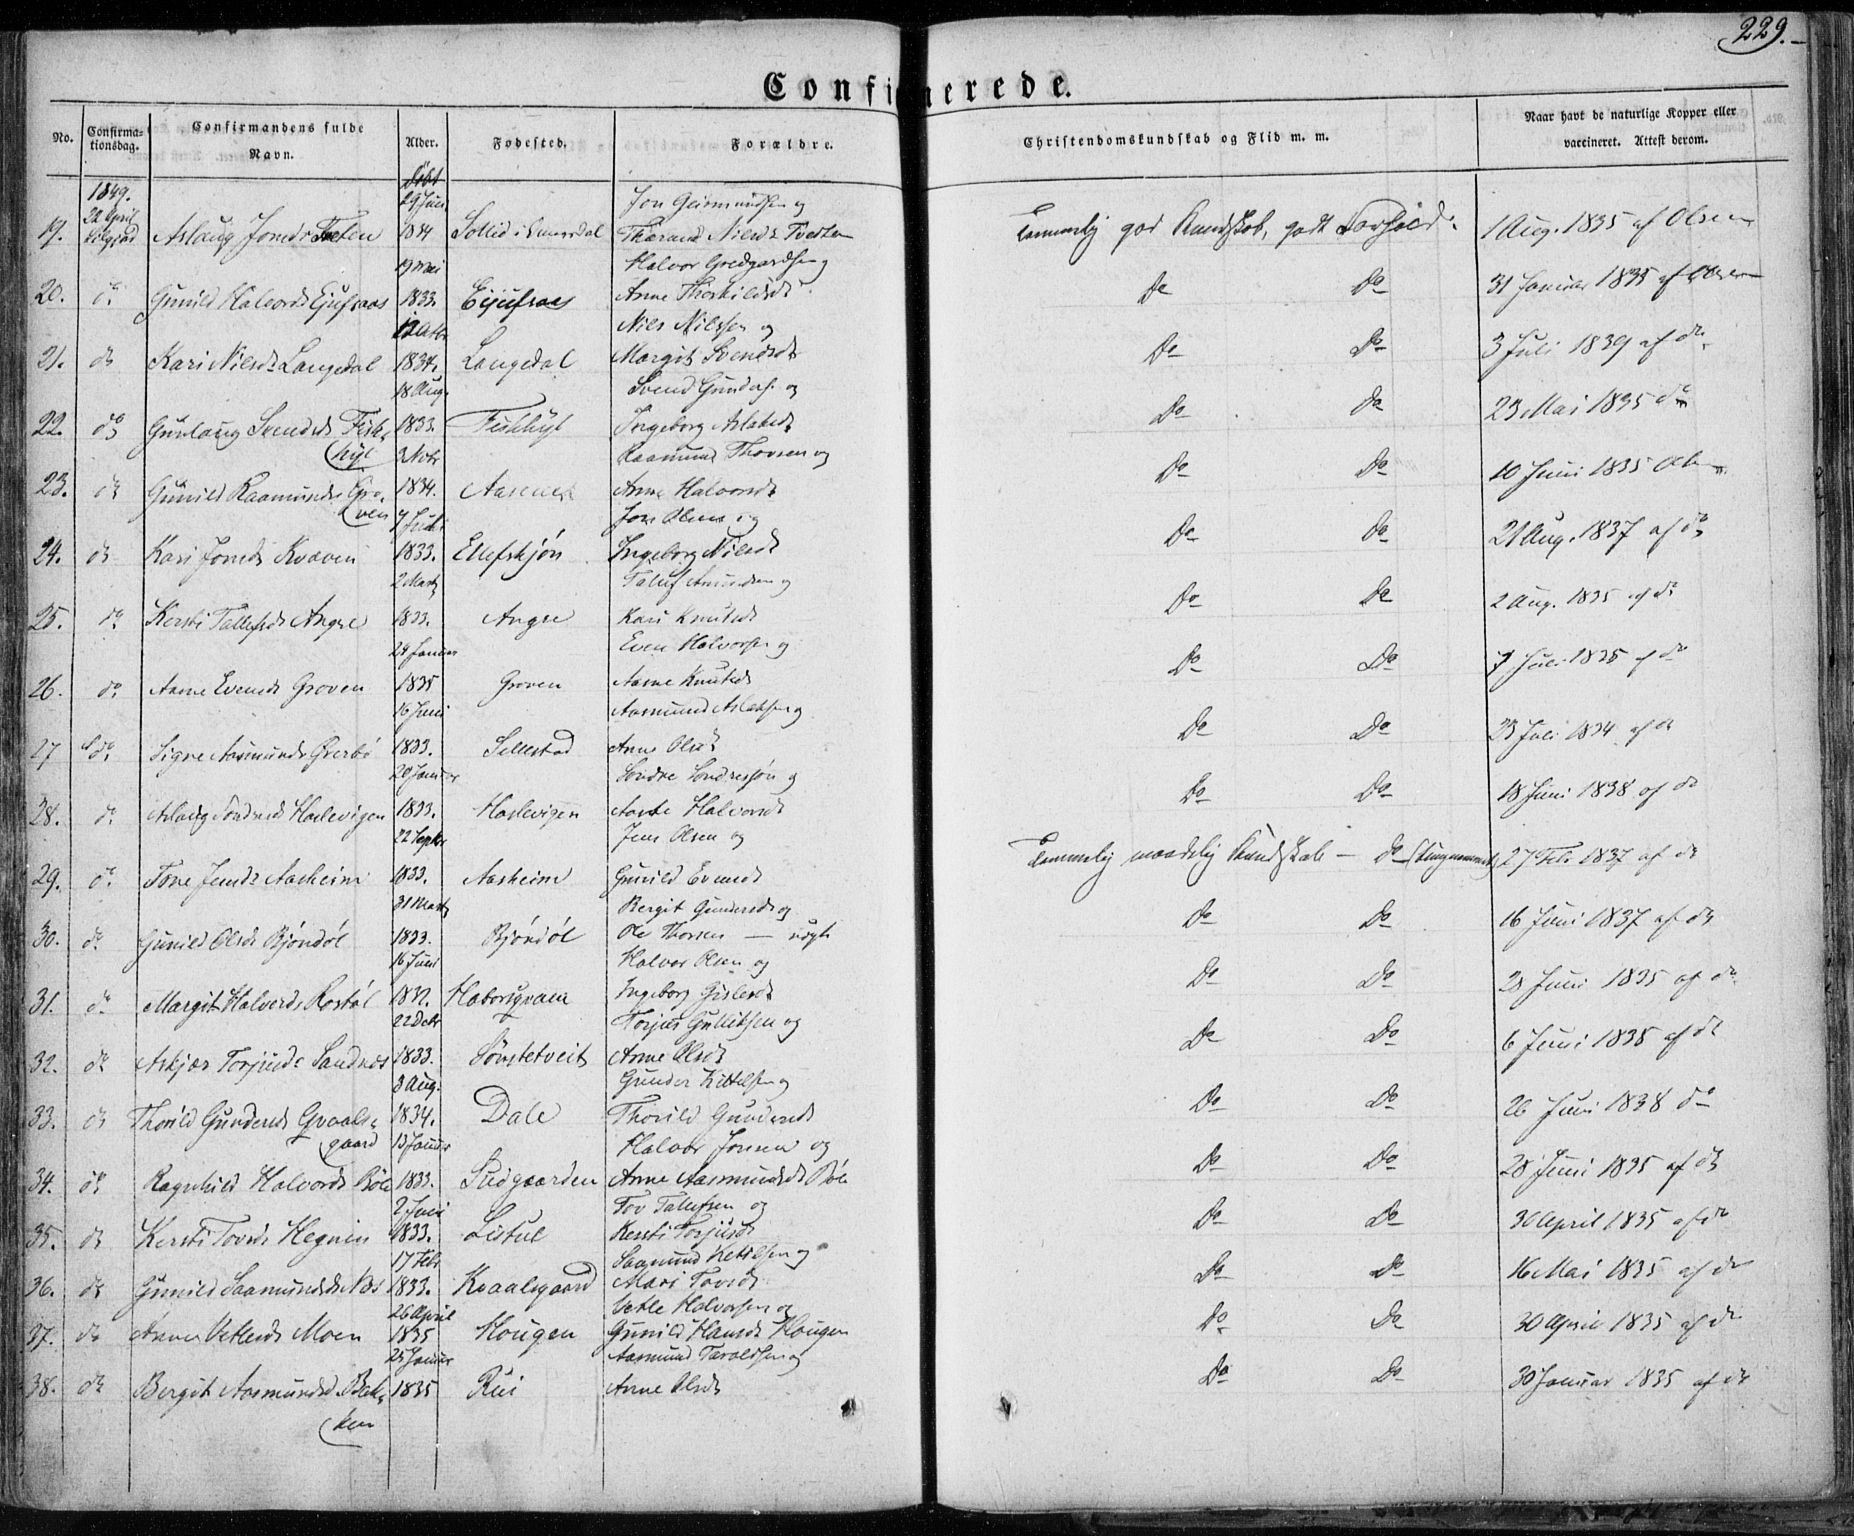 229.
Confirmerede.
No.
Confirma-
tionsdag.
Confirmandens fulde
Navn.
Alder.
Fødested.
Forældre.
Christendomskundskab og Flid m. m.
Naar havt de naturlige Kopper eller
vaccineret. Attest derom.
Døbt
1849.
29 Juni
Jon Geirmundsen og
22 April
19. Aslaug Jonsd: 1834 Sollid i Niels: Tveten Temmelig god Kundskab, godt Forhold. 1 Aug. 1835 af Olsen
19 Mai Halvor Gredgardsen og
20. do Gunild Halvorsd: Ejufsaas 1833. Ejufsaas Anne Thorkildsd: Do Do 31 Januar 1835 af Olsen
Nils Nilssen og
21. do Kari Nilsd: Langedal 1834. Langedal Margit Svendsd: Do Do 3 Juli 1839 af do
18 Aug. Svend Gunders. og
22. do Gunlaug Svendsd: Fisk- 1833. Fiskhyl Ingeborg Aslaksd: Do Do 23 Mai 1835 do
hyl 2 Novbr Raamund Thovsen og
23. do Gunild Raamundsd: Gro- 1834. Anne Halvorsd: Do Do 10 Juni 1835 Olsen
ven 7 Juli Jon Olsen og
24. do Kari Jonsd: Kvaven 1833. Ellefskjøn Ingeborg Nilsd: Do Do 21 Aug. 1837 af do
2 Marts Tallef Amundsen og
25. do Kersti Tallefsd: Angre 1833. Angre Kari Knutsd: Do Do 2 Aug. 1835 af do
24 Januar Even Halvorsen og
26. do Aane Evensd: Groven 1835 Groven Aane Knutsd: Do Do 7 Juli 1835 af do
16 Juni Aasmund Aslaksen og
27 do Signe Aasmundsd: Øverbø 1833. Sillestad Anne Olsd: Do Do 23 Juli 1834 af do
20 Januar Søndre Søndresøn og
28. do Aslaug Søndresd: Haslevigen 1833. Haslevigen Aaste Halvorsd: Do Do 18 Juni 1838 af do
22 Septbr Jens Olsen og
29. do Tone Jensd: Aasheim 1833. Aasheim Gunild Evensd: Temmelig maadelig Kundskab — do 27 Feb 1837 af do
31 Marts Bergit Gundersd: og
30. do Gunild Olsd: Bjøndøl 1833. Bjøndøl Ole Thorsen — uægte Do Do 16 Juni 1837 af do
16 Juni Halvor Olsen og
31. do Margit Halvorsd: Rostøl 1832. Haborqvam Ingeborg Gislesd: Do Do 28 Juni 1835 af do
22 Decbr Torjus Gulliksen og
32. do Askjær Torjusd: Sandnæs 1833. Søvstetveit Anne Olsd: Do Do 6 Juni 1835 af do
3 Aug. Gunder Kittelsen og
33. do Thorild Gundersd: Qvaals- 1834. Dale Thorild Gundersd: Do Do 26 Juni 1838 do
gaard 13 Januar Halvor Jonsen og
34. do Ragnhild Halvorsd: Bøle 1833. Sudgaarden Anne Aasmundsd: Bøle Do Do 28 Juni 1835 af do
2 Juni Tov Tallefsen og
35. do Kersti Tovsd: Hegnin 1833. Listul Kersti Torjusd: Do Do 30 April 1835 af do
17 Feb. Saamund Ketilsen og
36. do Gunild Saamundsd: Næs 1833. Kvaalsgaard Mari Tovsd: Do Do 16 Mai 1835 af do
26 April Vetle Halvorsen og
37. do Anne Vetlesd: Moen 1835 Hougen Gunild Hansd: Hougen Do Do 30 April 1835 af do
25 Januar Aasmund Taraldsen og
38. do Bergit Aasmundsd: Bak- 1835 Rui Anne Olsd: Do Do 30 Januar 1835 af do
ken